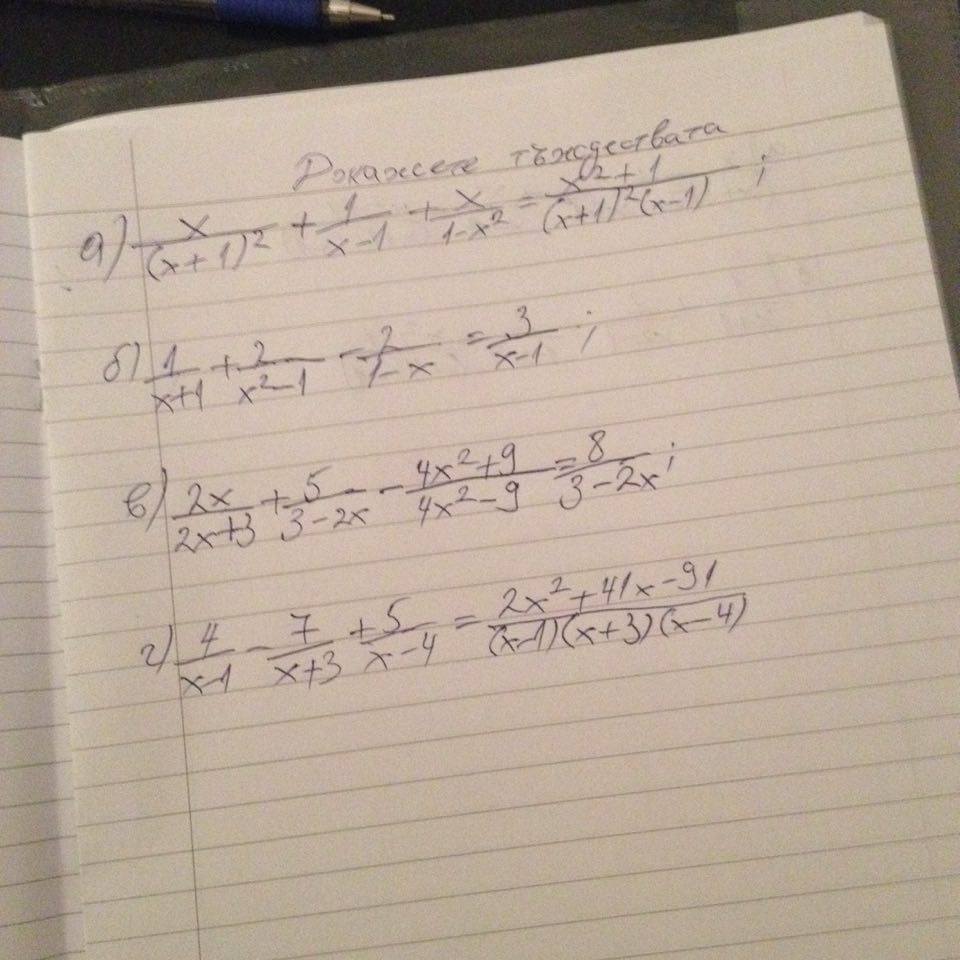 Докажете тъждествата
а) x/(x+1)² + 1/(x-1) + x/(1-x²) = (x²+1)/((x+1)²(x-1)) ;
б) 1/(x+1) + 2/(x²-1) - 2/(1-x) = 3/(x-1) ;
в) 2x/(2x+3) + 5/(3-2x) - (4x²+9)/(4x²-9) = 8/(3-2x) ;
г) 4/(x-1) - 7/(x+3) + 5/(x-4) = (2x²+41x-91)/((x-1)(x+3)(x-4))